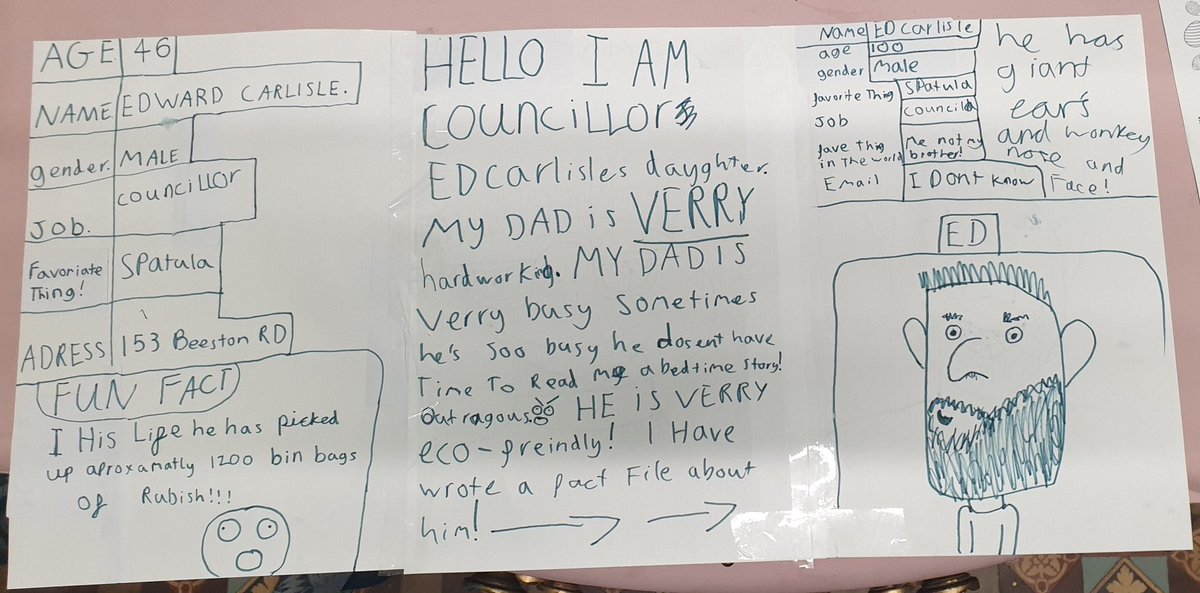 AGE 46
NAME EDWARD CARLISLE.
gender. MALE
JOB. councillor
Favoriate Thing! SPatula
ADRESS 153 Beeston RD
FUN FACT
I His Life he has picked
up aproxamatly 1200 bin bags
of Rubish!!!
HELLO I AM
COUNCILLOR
ED carlisles dayghter.
MY DAD is VERRY
hardworking. MY DAD IS
Verry busy sometimes
he's soo busy he dosent have
Time To Read me a bedtime story!
Outragous. HE iS VERRY
eco-freindly! I Have
wrote a fact File about
him!
Name ED carlisle
age 100
gender Male
favorite Thing SPatula
JOB
fave thing in The world Me not my brother!
Email I Dont know
he has
giant
ears
and monkey
nose and
Face!
ED